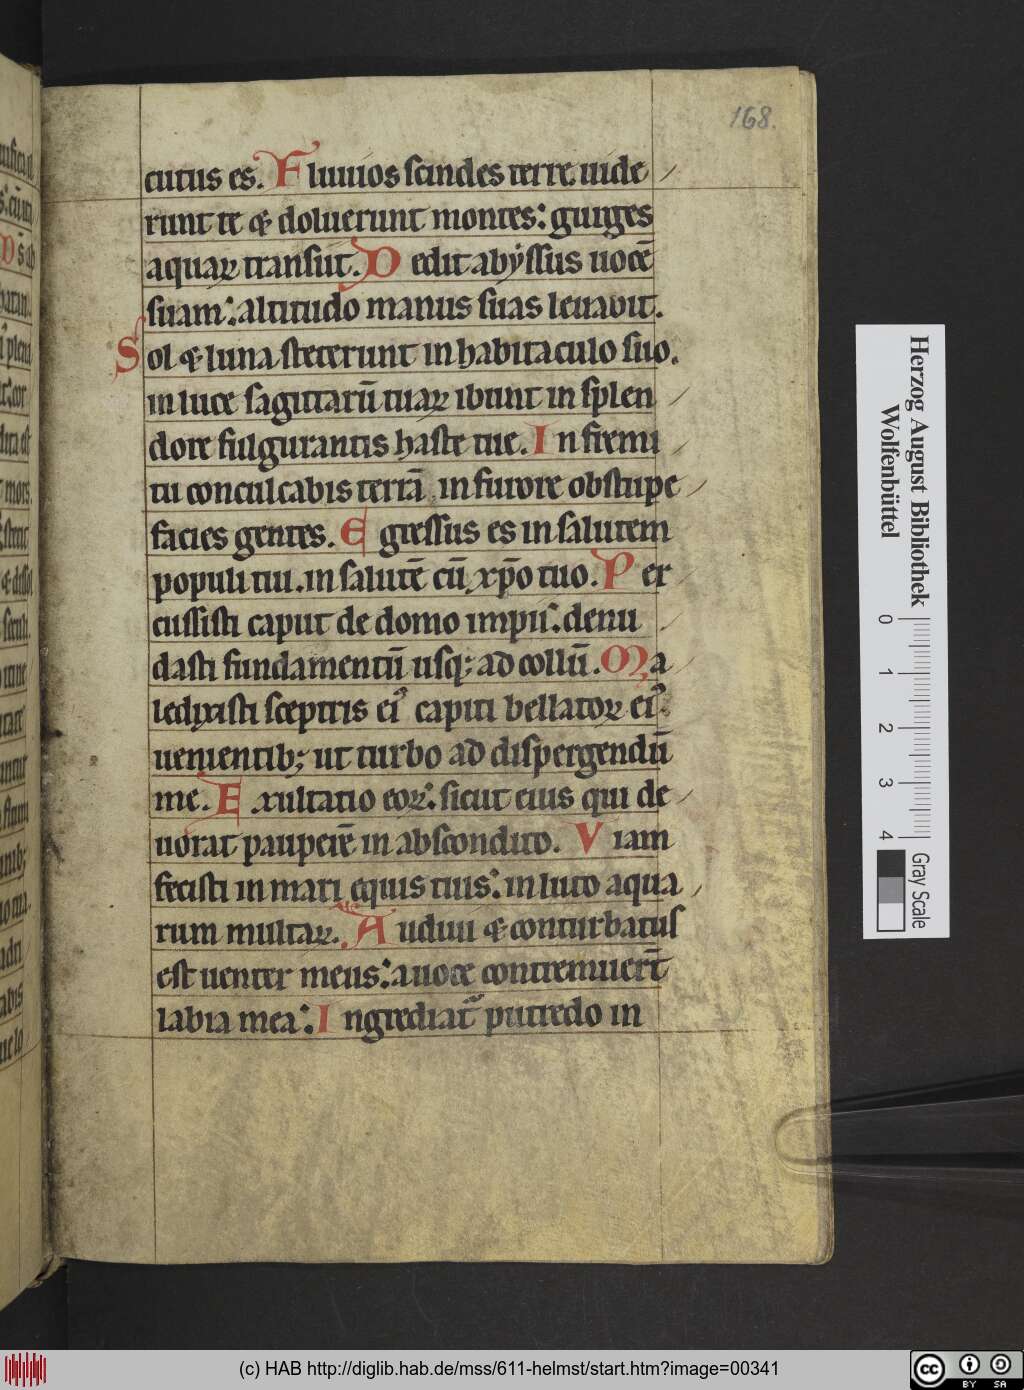 168.
cutus es. Fluuios scindes terre. uide
runt te & doluerunt montes: gurges
aquaꝝ transiit. Dedit abyssus uocē
suam: altitudo manus suas leuauit.
Sol & luna steterunt in habitaculo suo.
in luce sagittarū tuaꝝ ibunt in splen
dore fulgurantis haste tue. In fremi
tu conculcabis terrā. in furore obstupe
facies gentes. Egressus es in salutem
populi tui. in salutē cū xp̄o tuo. Per
cussisti caput de domo impii: denu
dasti fundamentū usq; ad collū. Ma
ledixisti sceptris eiꝰ capiti bellatoꝝ eiꝰ:
uenientib; ut turbo ad dispergendū
me. Exultatio eoꝝ: sicut eius qui de
uorat pauperē in abscondito. Viam
fecisti in mari equis tuis: in luto aqua
rum multaꝝ. Audiui & conturbatus
est uenter meus: a uoce contremuert̄
labia mea: Ingrediat᷑ putredo in
Herzog August Bibliothek
Wolfenbüttel
0 1 2 3 4
Gray Scale
(c) HAB http://diglib.hab.de/mss/611-helmst/start.htm?image=00341
cc BY SA